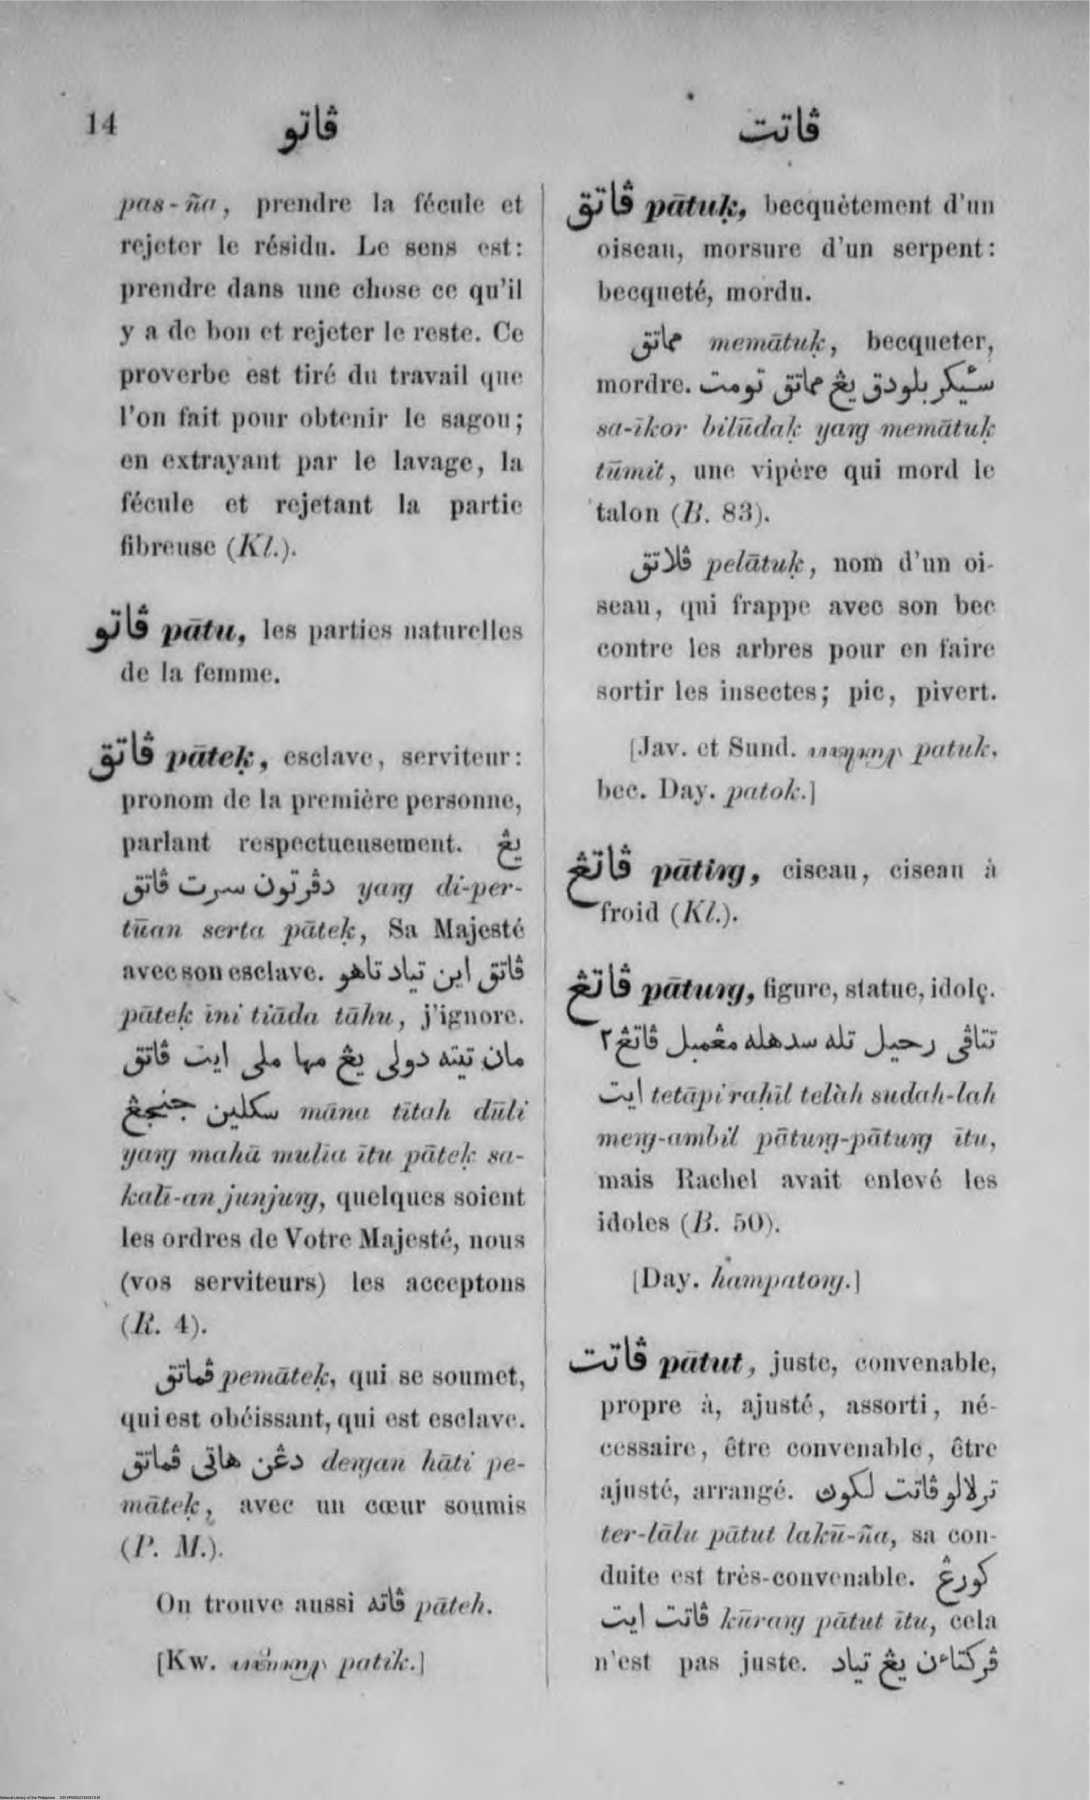 14
ڤاتو
ڤاتت
pas-ña, prendre la fécule et
rejeter le résidu. Le sens est:
prendre dans une chose ce qu'il
y a de bon et rejeter le reste. Ce
proverbe est tiré du travail que
l'on fait pour obtenir le sagou;
en extrayant par le lavage, la
fécule et rejetant la partie
fibreuse (Kl.).
ڤاتو pātu, les parties naturelles
de la femme.
ڤاتق pāteḳ, esclave, serviteur:
pronom de la première personne,
parlant respectueusement. يڠ
دڤرتون سرت ڤاتق yaṛg di-per-
tūan serta pāteḳ, Sa Majesté
avec son esclave. ڤاتق اين تياد تاهو
pāteḳ īni tiāda tāhu, j'ignore.
مان تيته دولي يڠ مها ملي ايت ڤاتق
سكلين جنجڠ māna tītah dūli
yaṛg mahā mulia ītu pāteḳ sa-
kalī-an junjuṛg, quelques soient
les ordres de Votre Majesté, nous
(vos serviteurs) les acceptons
(R. 4).
ڤماتق pemāteḳ, qui se soumet,
qui est obéissant, qui est esclave.
دڠن هاتي ڤماتق deṛgan hāti pe-
māteḳ, avec un cœur soumis
(P. M.).
On trouve aussi ڤاته pāteh.
[Kw. patik.]
ڤاتق pātuḳ, becquètement d'un
oiseau, morsure d'un serpent:
becqueté, mordu.
مماتق memātuḳ, becqueter,
mordre. سئيكر بلودق يڠ مماتق تومت
sa-īkor bilūdaḳ yaṛg memātuḳ
tūmit, une vipère qui mord le
talon (B. 83).
ڤلاتق pelātuḳ, nom d'un oi-
seau, qui frappe avec son bec
contre les arbres pour en faire
sortir les insectes; pic, pivert.
[Jav. et Sund. patuk,
bec. Day. patok.]
ڤاتڠ pātiṛg, ciseau, ciseau à
froid (Kl.).
ڤاتڠ pātuṛg, figure, statue, idole.
تتاڤي رحيل تله سدهله مڠمبل ڤاتڠ٢
ايت tetāpi raḥīl telàh sudah-lah
meṛg-ambil pātuṛg-pātuṛg ītu,
mais Rachel avait enlevé les
idoles (B. 50).
[Day. hampatoṛg.]
ڤاتت pātut, juste, convenable,
propre à, ajusté, assorti, né-
cessaire, être convenable, être
ajusté, arrangé. ترلالو ڤاتت لكون
ter-lālu pātut lakū-ña, sa con-
duite est très-convenable. كورڠ
ڤاتت ايت kūraṛg pātut ītu, cela
n'est pas juste. ڤركتاءن يڠ تياد